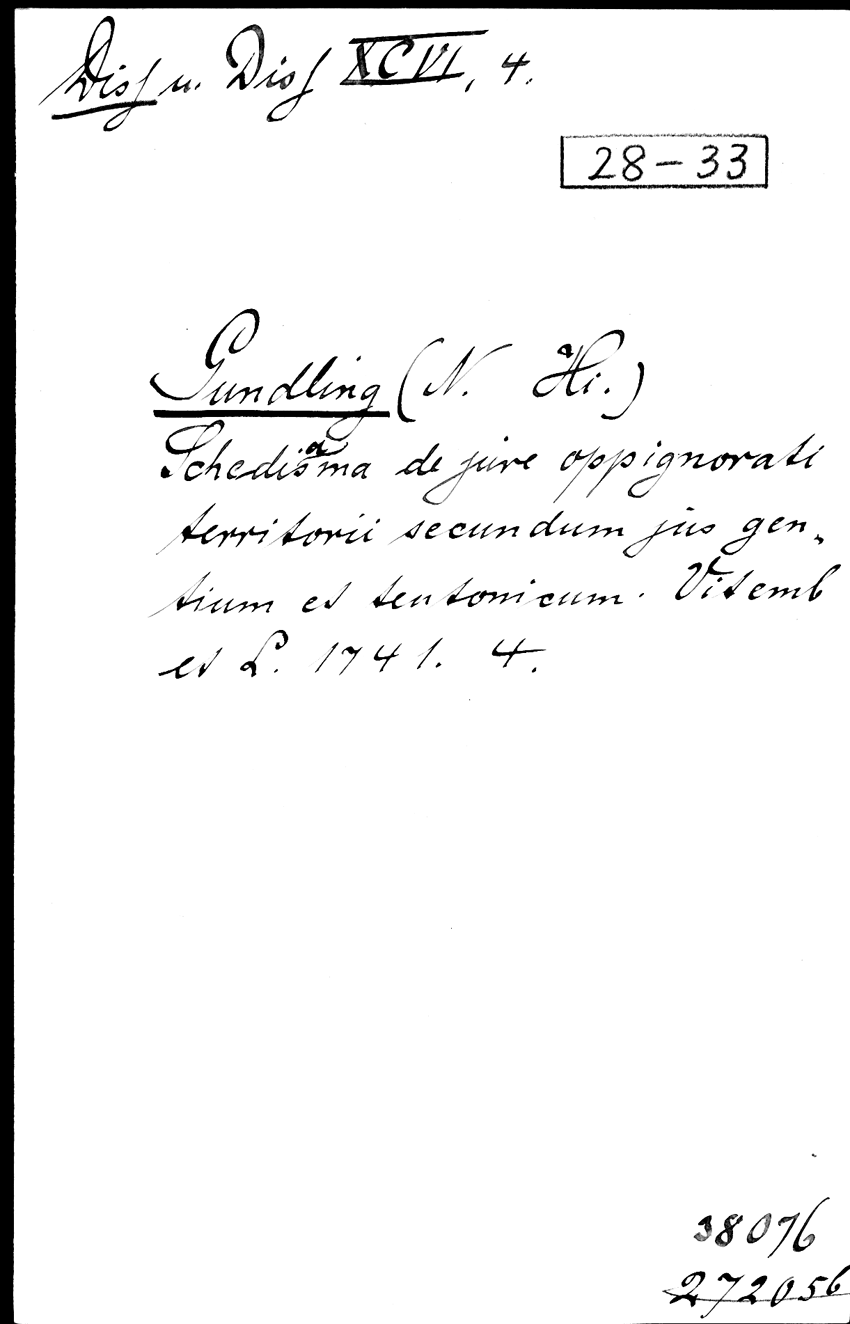 Diss u. Diss XCVI, 4.
28-33
Gundling (N. Hi.)
Schediasma de jure oppignorati
territorii secundum jus gen-
tium et teutonicum. Vitemb
et L. 1741. 4.
38076
272056